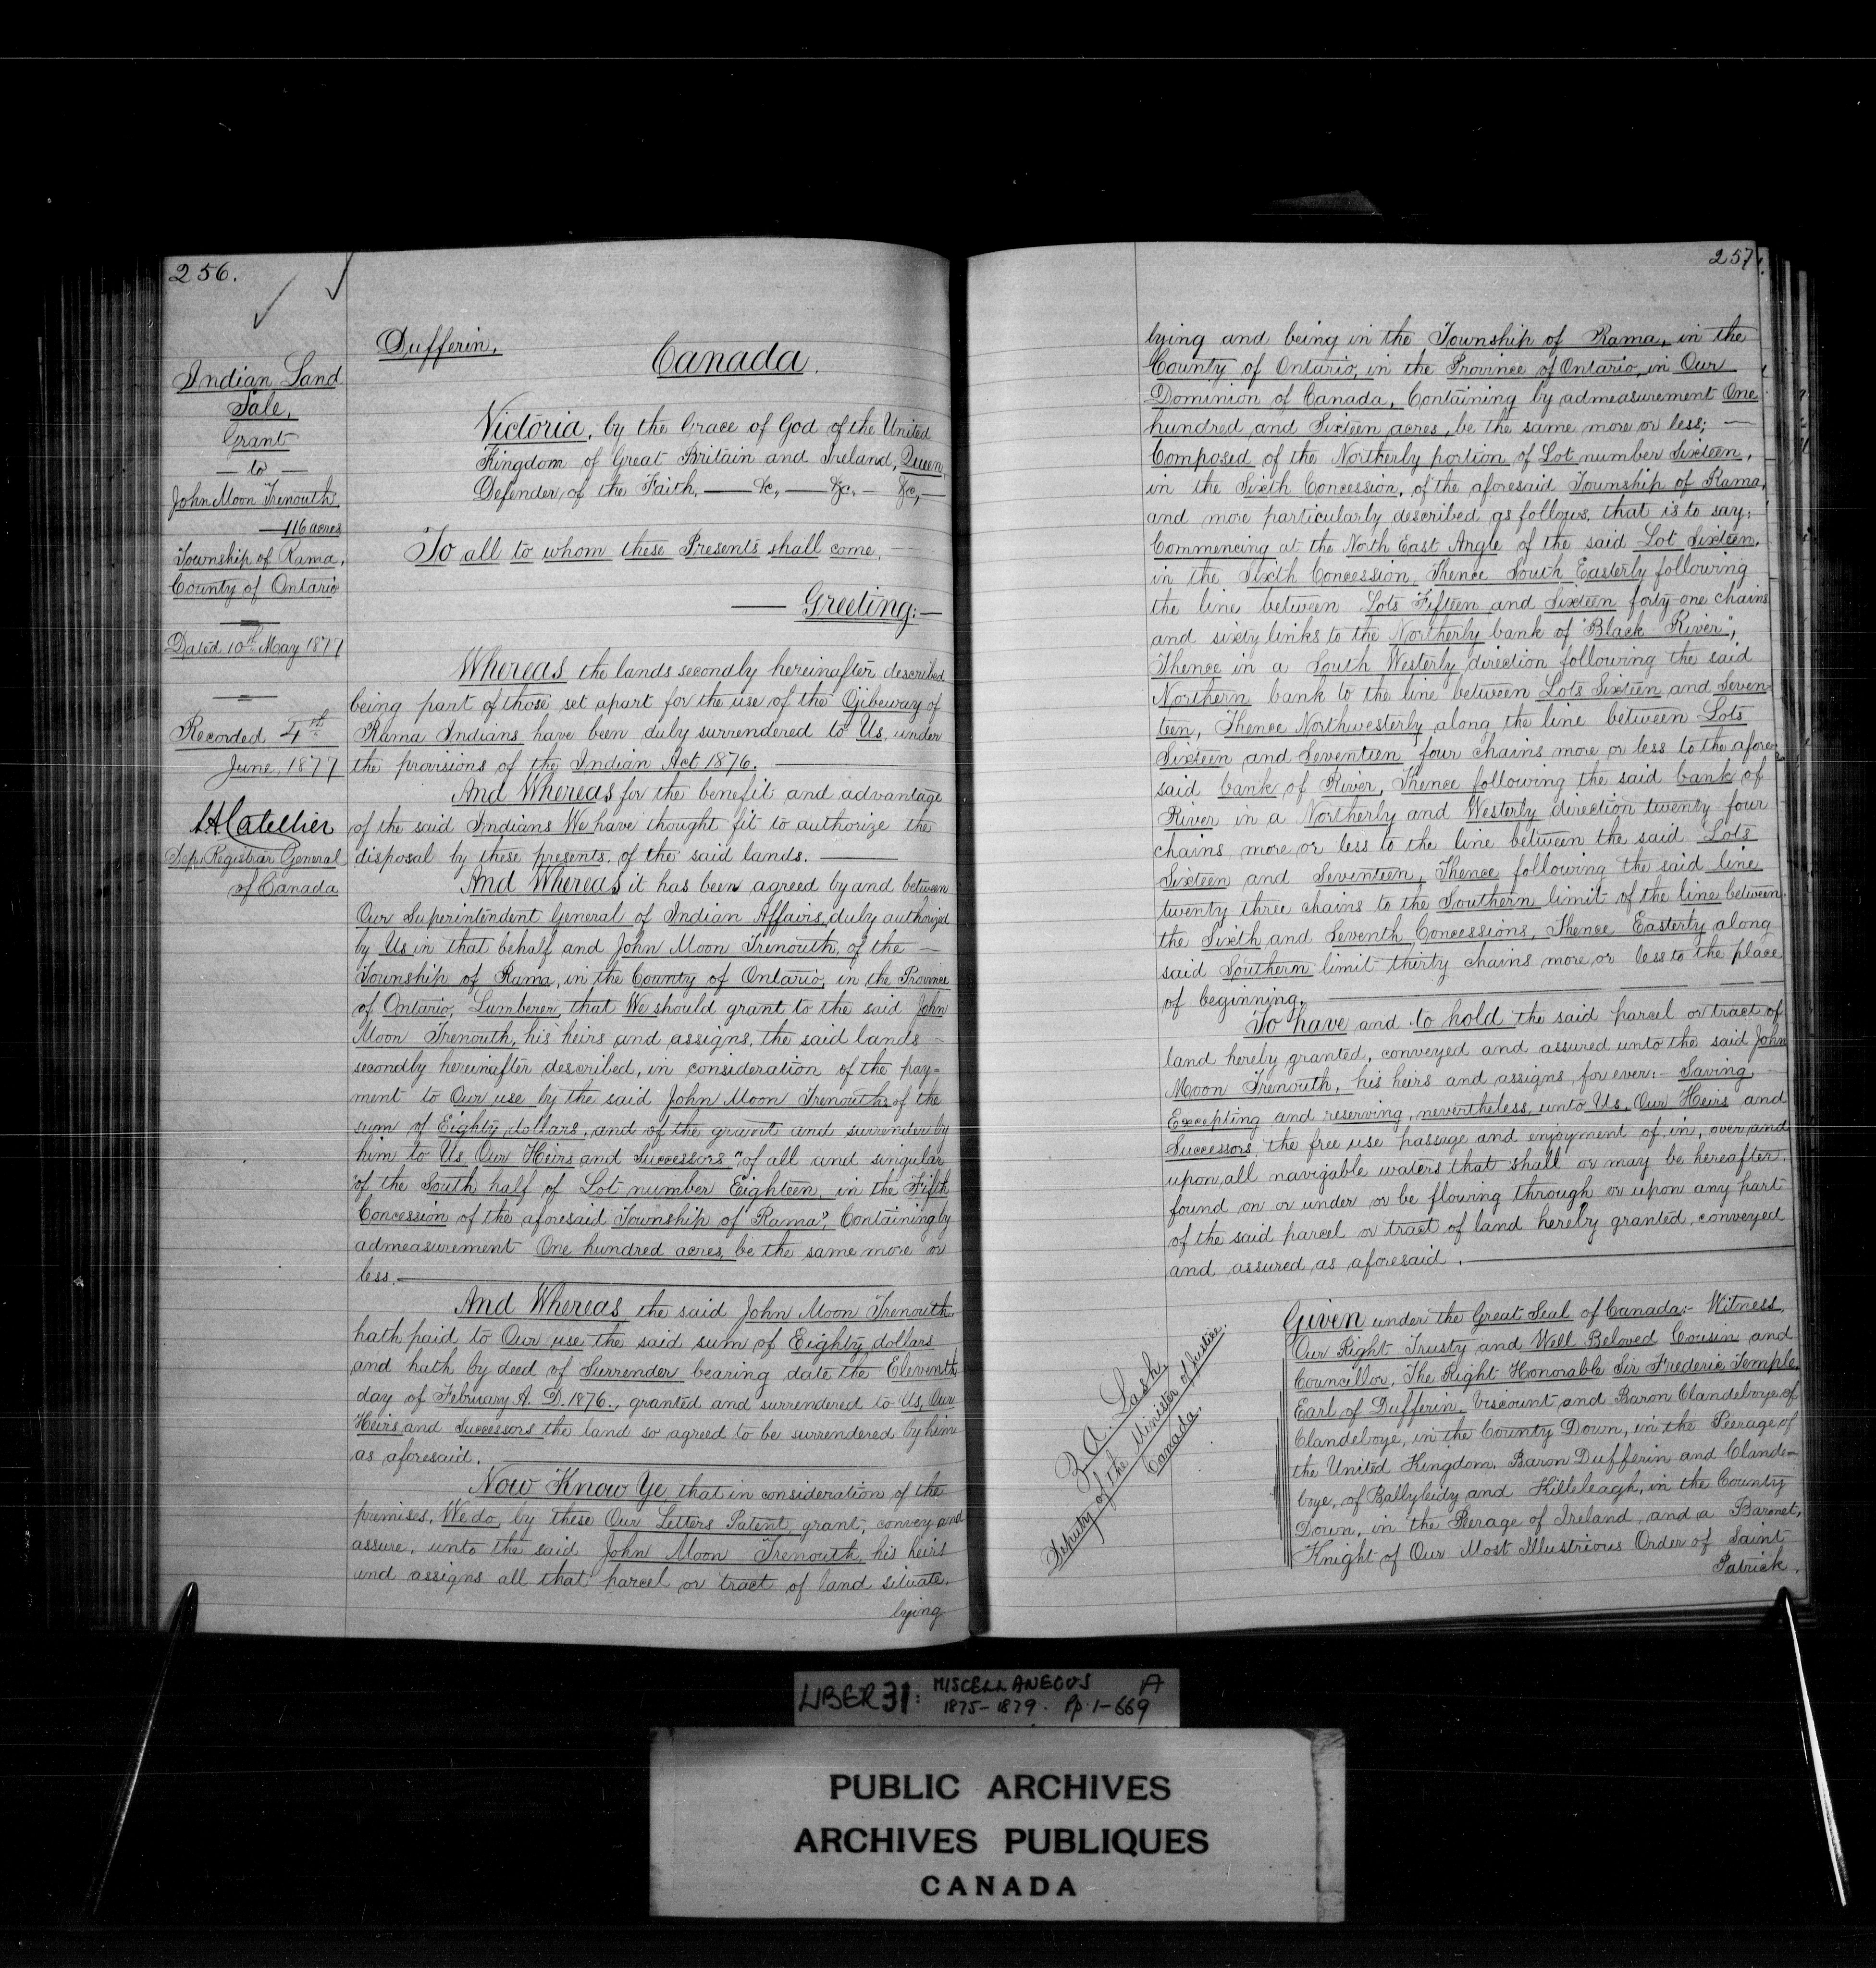 256.
Indian Land
Sale,
Grant
— to —
John Moon Trenouth,
—116 acres
Township of Rama,
County of Ontario
Dated 10th May 1877
Recorded 4th
June, 1877
Dep. Registrar General
of Canada
Dufferin,
Canada.
Victoria, by the Grace of God of the United
Kingdom of Great Britain and Ireland, Queen,
Defender of the Faith, — &c, — &c, — &c, —
To all to whom these Presents shall come, —
— Greeting: —
Whereas the lands secondly hereinafter described
being part of those set apart for the use of the Ojibeway of
Rama Indians have been duly surrendered to Us, under
the provisions of the Indian Act 1876. —
And Whereas for the benefit and advantage
of the said Indians We have thought fit to authorize the
disposal by these presents, of the said lands. —
And Whereas it has been agreed by and between
Our Superintendent General of Indian Affairs, duly authorized
by Us in that behalf and John Moon Trenouth, of the —
Township of Rama, in the County of Ontario, in the Province
of Ontario, Lumberer, that We should grant to the said John
Moon Trenouth, his heirs and assigns, the said lands —
secondly hereinafter described, in consideration of the pay=
ment to Our use by the said John Moon Trenouth, of the
sum of Eighty dollars, and of the grant and surrender by
him to Us, Our Heirs and Successors "of all and singular
"of the South half of Lot number Eighteen, in the Fifth
Concession of the aforesaid Township of Rama", Containing by
admeasurement One hundred acres, be the same more or
less. —
And Whereas the said John Moon Trenouth
hath paid to Our use the said sum of Eighty dollars
and hath by deed of Surrender bearing date the Eleventh
day of February A. D. 1876., granted and surrendered to Us, Our
Heirs and Successors the land so agreed to be surrendered by him
as aforesaid. —
Now Know Ye that in consideration of the
premises, We do, by these Our Letters Patent, grant, convey and
assure, unto the said John Moon Trenouth, his heirs
and assigns all that parcel or tract of land situate,
lying
257.
lying and being in the Township of Rama, in the
County of Ontario, in the Province of Ontario, in Our
Dominion of Canada, Containing by admeasurement One
hundred and Sixteen acres, be the same more or less; —
Composed of the Northerly portion of Lot number Sixteen,
in the Sixth Concession, of the aforesaid Township of Rama,
and more particularly described as follows, that is to say:
Commencing at the North East Angle of the said Lot Sixteen,
in the Sixth Concession, Thence South Easterly following
the line between Lots Fifteen and Sixteen forty-one chains
and sixty links to the Northerly bank of "Black River",
Thence in a South Westerly direction following the said
Northern bank to the line between Lots Sixteen and Seven-
teen, Thence Northwesterly along the line between Lots
Sixteen and Seventeen four chains more or less to the afore-
said bank of River, Thence following the said bank of
River in a Northerly and Westerly direction twenty four
chains more or less to the line between the said Lots
Sixteen and Seventeen, Thence following the said line
twenty three chains to the Southern limit of the line between
the Sixth and Seventh Concessions, Thence Easterly along
said Southern limit thirty chains more or less to the place
of beginning. —
To have and to hold the said parcel or tract of
land hereby granted, conveyed and assured unto the said John
Moon Trenouth, his heirs and assigns for ever:— Saving,
Excepting and reserving, nevertheless, unto Us, Our Heirs and
Successors the free use passage and enjoyment of, in, over and
upon, all navigable waters that shall or may be hereafter
found on or under or be flowing through or upon any part
of the said parcel or tract of land hereby granted, conveyed
and assured as aforesaid. —
Z. A. Lash,
Deputy of the Minister of Justice.
Canada.
Given under the Great Seal of Canada:— Witness,
Our Right Trusty and Well Beloved Cousin and
Councillor, The Right Honorable Sir Frederic Temple,
Earl of Dufferin, Viscount and Baron Clandeboye, of
Clandeboye, in the County Down, in the Peerage of
the United Kingdom, Baron Dufferin and Clande=
boye, of Ballyleidy and Killeleagh, in the County
Down, in the Peerage of Ireland, and a Baronet,
Knight of Our Most Illustrious Order of Saint
Patrick,
LIBER 31: MISCELLANEOUS A
1875-1879. Pp. 1-669
PUBLIC ARCHIVES
ARCHIVES PUBLIQUES
CANADA